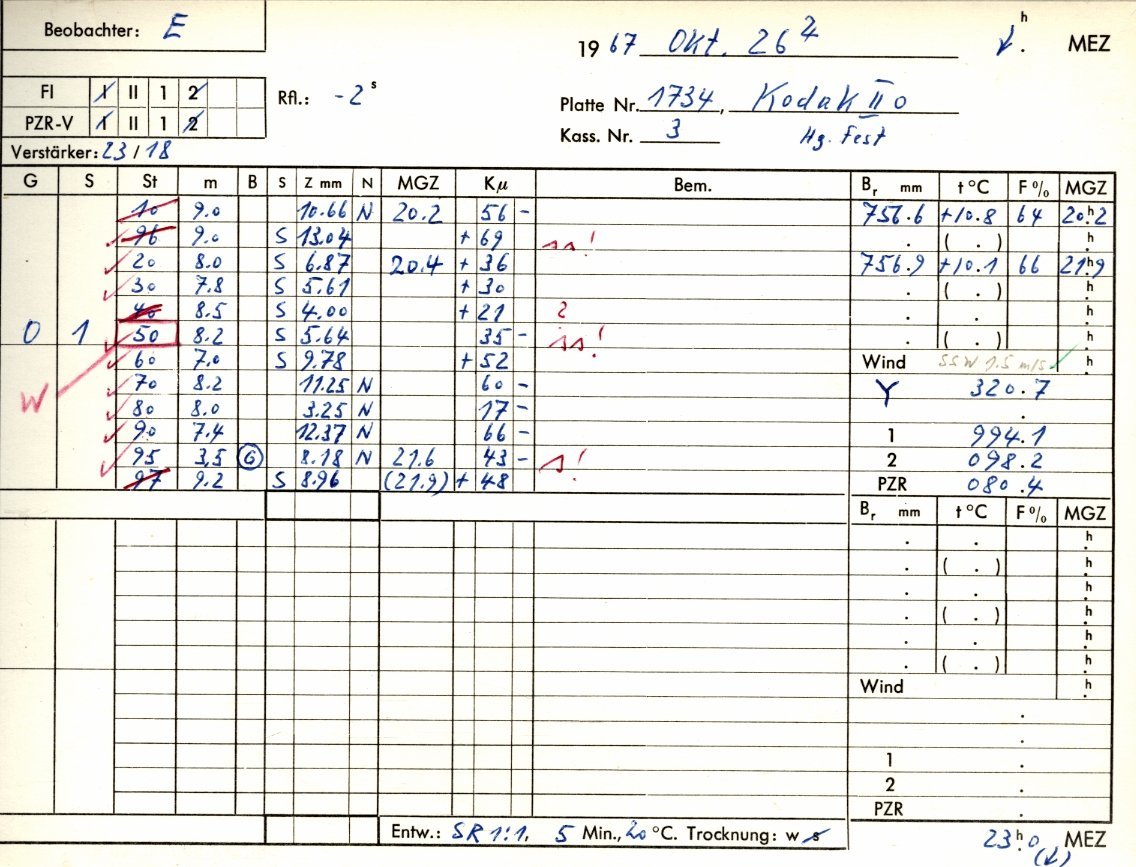 Beobachter: E
1967 Okt. 26 h . MEZ
FI I II 1 2 Rfl.: -2 s
Platte Nr. 1734, Kodak II o
PZR-V I II 1 2
Kass. Nr. 3 Hg. Fest
Verstärker: 23 / 18
G S St m B S Z mm N MGZ Kμ Bem. Br mm t °C F % MGZ
10 9.0 10.66 N 20.2 56 - 756.6 +10.8 64 20h.2
96 9.0 S 13.04 + 69 ss! . ( . ) h.
20 8.0 S 6.87 20.4 + 36 756.9 +10.1 66 21h.9
30 7.8 S 5.61 + 30 . ( . ) h.
40 8.5 S 4.00 + 21 ? . . h.
0 1 50 8.2 S 5.64 35 - ss! . ( . ) h.
60 7.0 S 9.78 + 52 Wind SSW 1.5 m/s h.
W 70 8.2 11.25 N 60 - Y 320.7
80 8.0 3.25 N 17 - .
90 7.4 12.37 N 66 - 1 994.1
95 3,5 G 8.18 N 21.6 43 - s! 2 098.2
97 9.2 S 8.96 (21.9) + 48 PZR 080.4
Br mm t °C F % MGZ
. . h.
. ( . ) h.
. . h.
. ( . ) h.
. . h.
. ( . ) h.
Wind h.
.
.
1 .
2 .
PZR .
Entw.: SR 1:1, 5 Min., 20 °C. Trocknung: w s 23h.0 MEZ